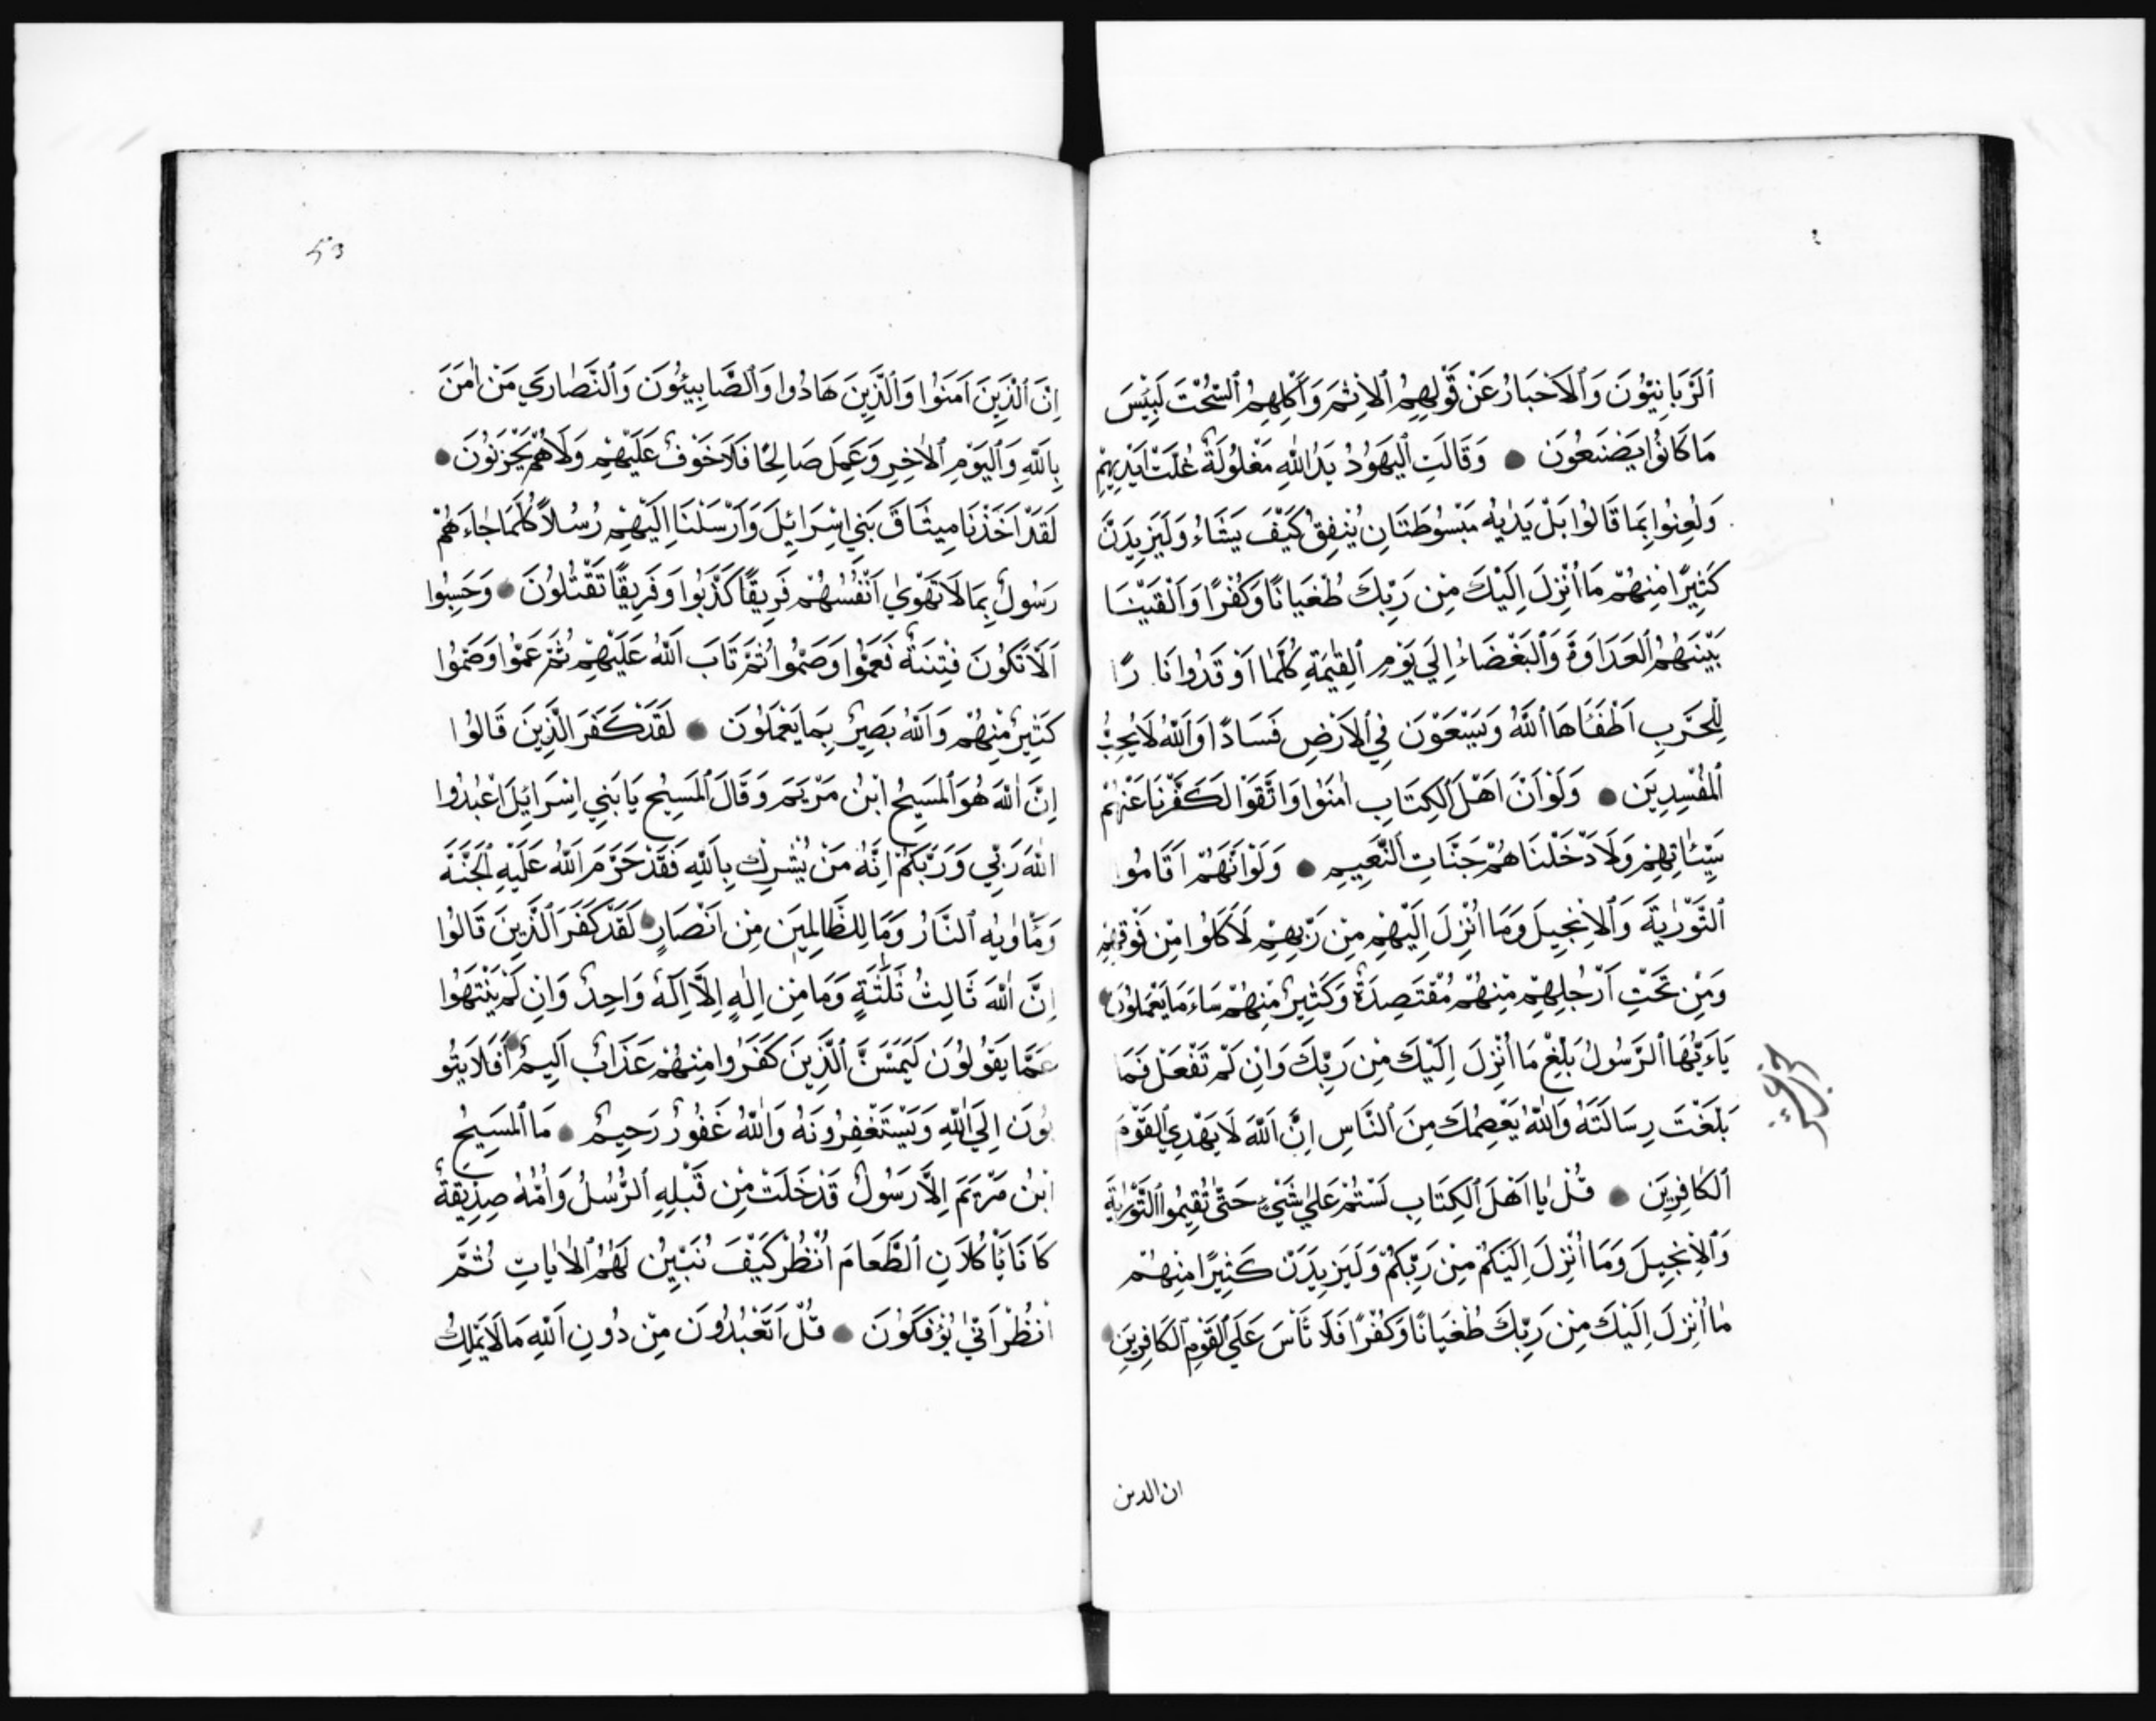 اَلرَّبَّانِيُّونَ وَالْاَحْبَارُ عَنْ قَوْلِهِمُ الْاِثْمَ وَاَكْلِهِمُ السُّحْتَ لَبِئْسَ
مَا كَانُوا يَصْنَعُونَ ● وَقَالَتِ الْيَهُودُ يَدُ اللّٰهِ مَغْلُولَةٌ غُلَّتْ اَيْدِيهِمْ
وَلُعِنُوا بِمَا قَالُوا بَلْ يَدٰيهُ مَبْسُوطَتَانِ يُنْفِقُ كَيْفَ يَشَاءُ وَلَيَزِيدَنَّ
كَثِيرًا مِنْهُمْ مَا اُنْزِلَ اِلَيْكَ مِنْ رَبِّكَ طُغْيَانًا وَكُفْرًا وَاَلْقَيْنَا
بَيْنَهُمُ الْعَدَاوَةَ وَالْبَغْضَاءَ اِلَي يَوْمِ الْقِيٰمَةِ كُلَّمَا اَوْقَدُوا نَارًا
لِلْحَرْبِ اَطْفَاَهَا اللّٰهُ وَيَسْعَوْنَ فِي الْاَرْضِ فَسَادًا وَاللّٰهُ لَا يُحِبُّ
الْمُفْسِدِينَ ● وَلَوْ اَنَّ اَهْلَ الْكِتَابِ اٰمَنُوا وَاتَّقَوْا لَكَفَّرْنَا عَنْهُمْ
سَيِّئَاتِهِمْ وَلَاَدْخَلْنَاهُمْ جَنَّاتِ النَّعِيمِ ● وَلَوْ اَنَّهُمْ اَقَامُوا
التَّوْرٰيةَ وَالْاِنْجِيلَ وَمَا اُنْزِلَ اِلَيْهِمْ مِنْ رَبِّهِمْ لَاَكَلُوا مِنْ فَوْقِهِمْ
وَمِنْ تَحْتِ اَرْجُلِهِمْ مِنْهُمْ مُقْتَصِدَةٌ وَكَثِيرٌ مِنْهُمْ سَاءَ مَا يَعْمَلُونَ ●
يَاءَيُّهَا الرَّسُولُ بَلِّغْ مَا اُنْزِلَ اِلَيْكَ مِنْ رَبِّكَ وَاِنْ لَمْ تَفْعَلْ فَمَا
بَلَّغْتَ رِسَالَتَهُ وَاللّٰهُ يَعْصِمُكَ مِنَ النَّاسِ اِنَّ اللّٰهَ لَا يَهْدِي الْقَوْمَ
الْكَافِرِينَ ● قُلْ يَا اَهْلَ الْكِتَابِ لَسْتُمْ عَلٰي شَيْءٍ حَتّٰي تُقِيمُوا التَّوْرٰيةَ
وَالْاِنْجِيلَ وَمَا اُنْزِلَ اِلَيْكُمْ مِنْ رَبِّكُمْ وَلَيَزِيدَنَّ كَثِيرًا مِنْهُمْ
مٰا اُنْزِلَ اِلَيْكَ مِنْ رَبِّكَ طُغْيَانًا وَكُفْرًا فَلَا تَاْسَ عَلَي الْقَوْمِ الْكَافِرِينَ ●
ان الذين
53
اِنَّ الَّذِينَ اَمَنُوا وَالَّذِينَ هَادُوا وَالصَّابِيئُونَ وَالنَّصَارَي مَنْ اٰمَنَ
بِاللّٰهِ وَالْيَوْمِ الْاٰخِرِ وَعَمِلَ صَالِحًا فَلَا خَوْفٌ عَلَيْهِمْ وَلَا هُمْ يَحْزَنُونَ ●
لَقَدْ اَخَذْنَا مِيثَاقَ بَنِي اِسْرَائِيلَ وَاَرْسَلْنَا اِلَيْهِمْ رُسُلًا كُلَّمَا جٰاءَهُمْ
رَسُولٌ بِمَا لَا تَهْوٰي اَنْفُسُهُمْ فَرِيقًا كَذَّبُوا وَفَرِيقًا تَقْتُلُونَ ● وَحَسِبُوا
اَلَّا تَكُونَ فِتْنَةٌ فَعَمُوا وَصَمُّوا ثُمَّ تَابَ اللّٰهُ عَلَيْهِمْ ثُمَّ عَمُوا وَصَمُّوا
كَثِيرٌ مِنْهُمْ وَاللّٰهُ بَصِيرٌ بِمَا يَعْمَلُونَ ● لَقَدْ كَفَرَ الَّذِينَ قَالُوا
اِنَّ اللّٰهَ هُوَ الْمَسِيحُ ابْنُ مَرْيَمَ وَقَالَ الْمَسِيحُ يَا بَنِي اِسْرَائِيلَ اعْبُدُوا
اللّٰهَ رَبِّي وَرَبَّكُمْ اِنَّهُ مَنْ يُشْرِكْ بِاللّٰهِ فَقَدْ حَرَّمَ اللّٰهُ عَلَيْهِ الْجَنَّةَ
وَمَاْوٰيهُ النَّارُ وَمَا لِلظَّالِمِينَ مِنْ اَنْصَارٍ ● لَقَدْ كَفَرَ الَّذِينَ قَالُوا
اِنَّ اللّٰهَ ثَالِثُ ثَلٰثَةٍ وَمَا مِنْ اِلٰهٍ اِلَّا اِلَهٌ وَاحِدٌ وَاِنْ لَمْ يَنْتَهُوا
عَمَّا يَقُولُونَ لَيَمَسَّنَّ الَّذِينَ كَفَرُوا مِنْهُمْ عَذَابٌ اَلِيمٌ ● اَفَلَا يَتُو
بُونَ اِلَي اللّٰهِ وَيَسْتَغْفِرُونَهُ وَاللّٰهُ غَفُورٌ رَحِيمٌ ● مَا الْمَسِيحُ
ابْنُ مَرْيَمَ اِلَّا رَسُولٌ قَدْ خَلَتْ مِنْ قَبْلِهِ الرُّسُلُ وَاُمُّهُ صِدِّيقَةٌ
كَانَا يَاْكُلَانِ الطَّعَامَ اُنْظُرْ كَيْفَ نُبَيِّنُ لَهُمُ الْاٰيَاتِ ثُمَّ
انْظُرْ اَنّٰي يُؤْفَكُونَ ● قُلْ اَتَعْبُدُونَ مِنْ دُونِ اللّٰهِ مَا لَا يَمْلِكُ